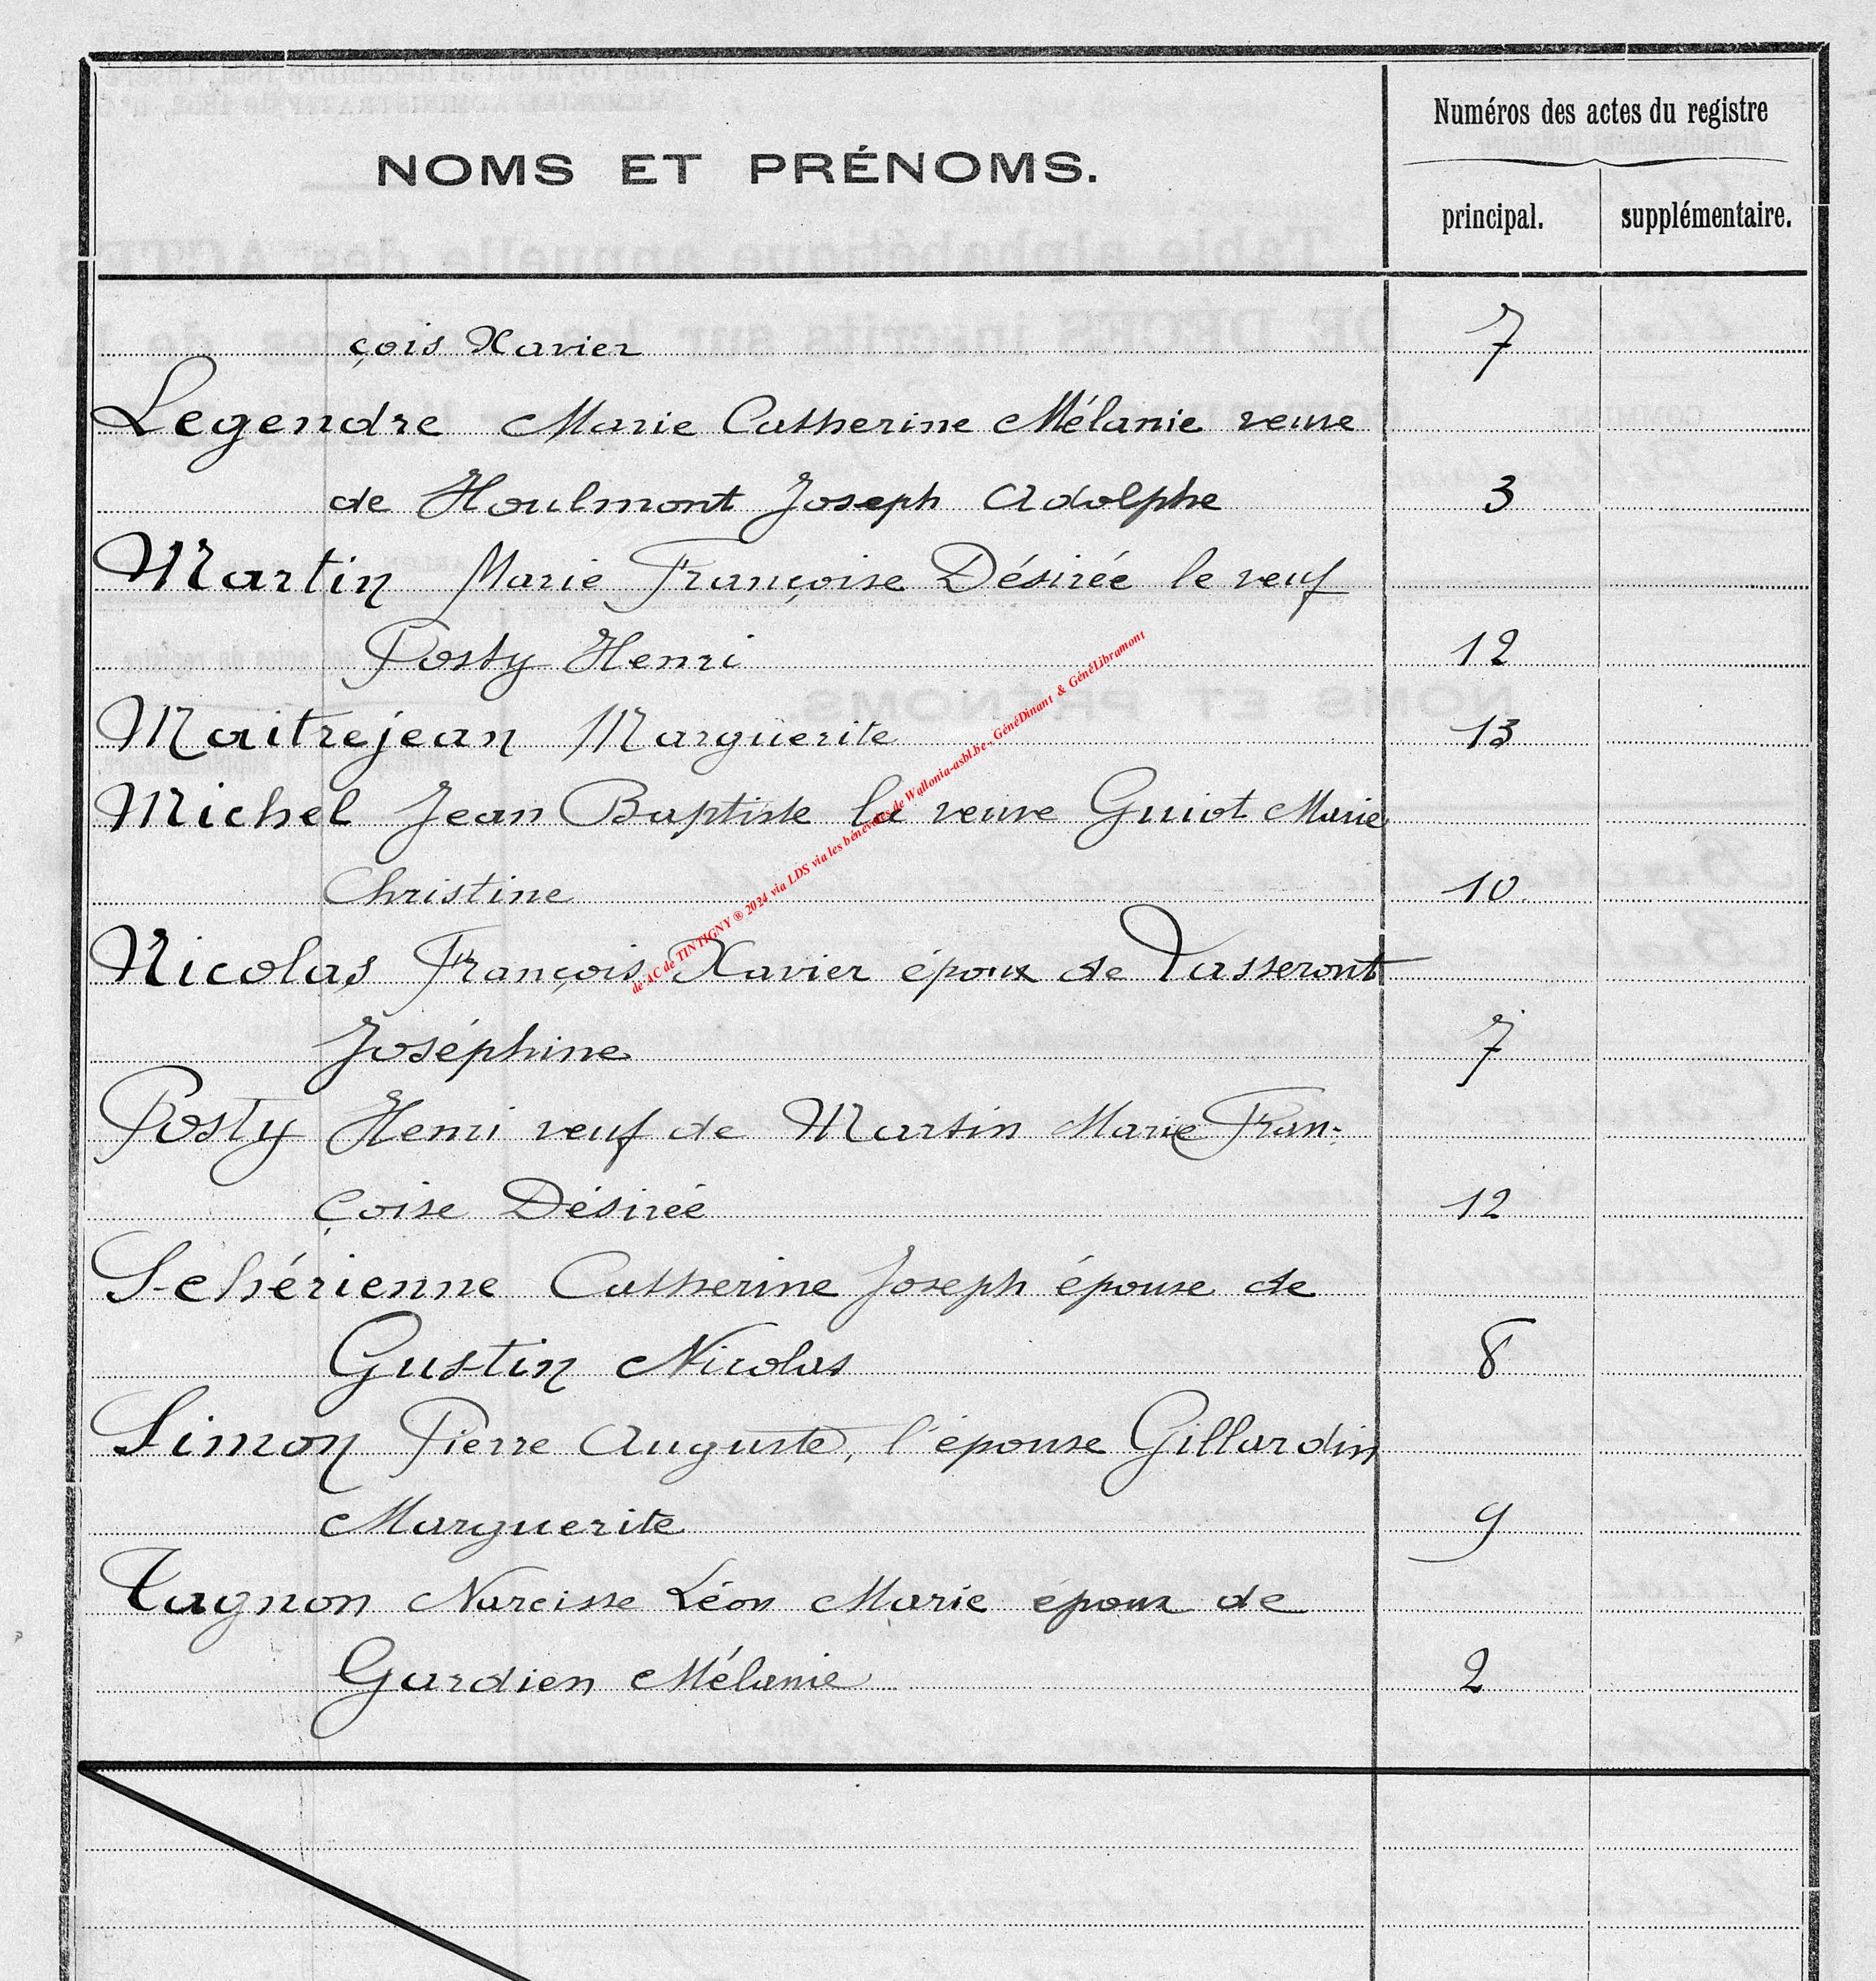 Numéros des actes du registre
NOMS ET PRÉNOMS.
principal. supplémentaire.
çois Xavier 7
Legendre Marie Catherine Mélanie veuve
de Houlmont Joseph Adolphe 3
Martin Marie Françoise Désirée le veuf
Posty Henri 12
Maitrejean Marguerite 13
Michel Jean Baptiste la veuve Guiot Marie
Christine 10
Nicolas François Xavier époux de Vasseront
Joséphine 7
Posty Henri veuf de Martin Marie Fran-
çoise Désirée 12
Schérienne Catherine Joseph épouse de
Gustin Nicolas 8
Simon Pierre Auguste, l'épouse Gillardin
Marguerite 9
Tagnon Narcisse Léon Marie époux de
Gardien Mélanie 2
de AC de TINTIGNY ® 2024 via LDS via les bénévoles de Wallonia-asbl.be - GénéDinant & GénéLibramont